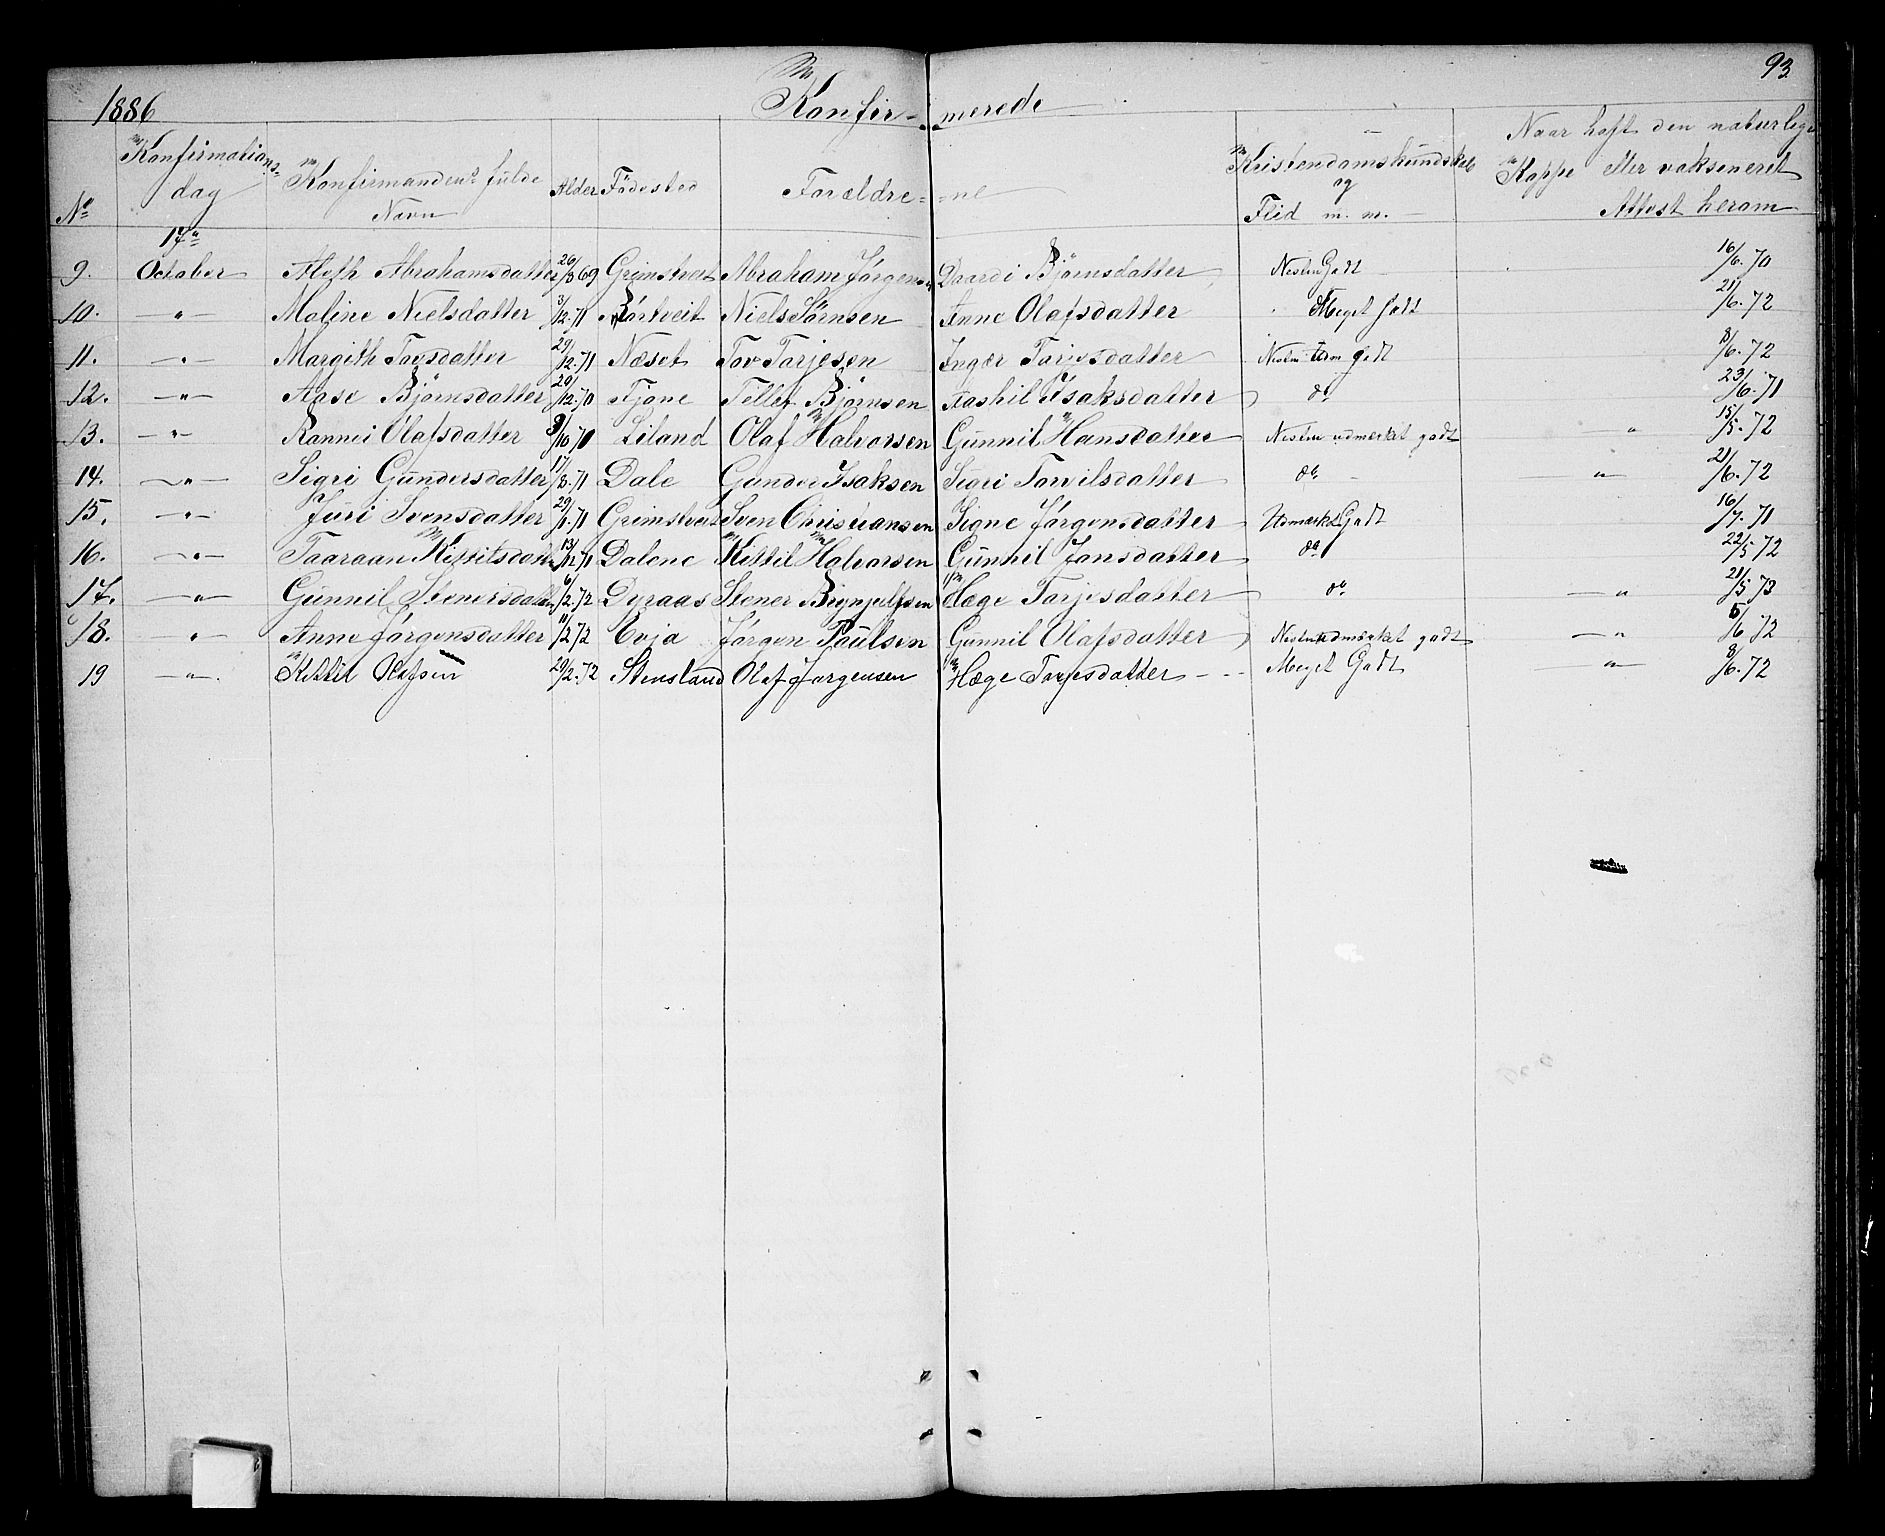 93.
1886 Konfir- merede
No Konfirmations- dag Konfirmandens fulde Navn Alder Födested Forældre- =ne Kristendomskundskab og Flid m. m. Naar haft den naturlige Koppe eller vaksineret Attest herom
17de
9. October Aloth Abrahamsdatter 26/8 69 Grimstveit Abraham Jörgensen Daardi Björnsdatter Nesten Godt 16/6. 70
10. —"— Maline Nielsdatter 3/12. 71 Börtveit Niels Sörnsen Anne Olafsdatter Meget Godt 21/6. 72
11. —"— Margith Tovsdatter 29/12. 71 Næset Tov Tarjesen Inger Tarjesdatter Nesten Udm godt 8/6. 72
12. —"— Aase Björnsdatter 29/12. 70 Tjöne Tellef Björnsen Aashil Isaksdatter do 23/6. 71
13. —"— Rannei Olafsdatter 9/10 70 Liland Olaf Halvorsen Gunnil Hansdatter Nesten udmerket godt " 15/5. 72
14. —"— Sigri Gundersdatter 17/8. 71 Dale Gunder Isaksen Sigri Tarvilsdatter do — " — 21/6. 72
15. —"— Juri Svensdatter 29/11. 71 Grimstveit Sven Christiansen Signe Jörgensdatter Udmærket Godt 16/7. 71
16. —"— Taaraan Kittilsdatter 13/12 71 Dalene Kittil Halvorsen Gunnil Jonsdatter do 22/5. 72
17. —"— Gunnil Stenersdatter 6/2. 72 Dyraas Stener Bignjulfsen Hæge Tarjesdatter do — " 21/5 73
18. " Anne Jörgensdatter 11/2 72 Evja Jörgen Paulsen Gunnil Olafsdatter Nesten udmærket godt — " 5/6 72
19 —"— Kittil Olafsen 29/2. 72 Stensland Olaf Jorgensen Hæge Tarjesdatter Meget Godt — " — 8/6. 72